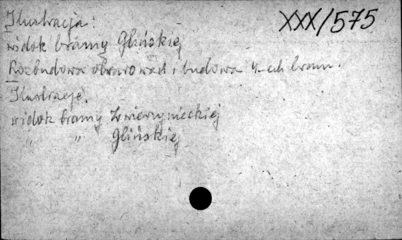 Ilustracja: XXX/575
widok bramy Glińskiej
Rozbudowa obwarowań i budowa 4-ech bram.
Ilustracje.
widok bramy Zwierzynieckiej
" " Glińskiej